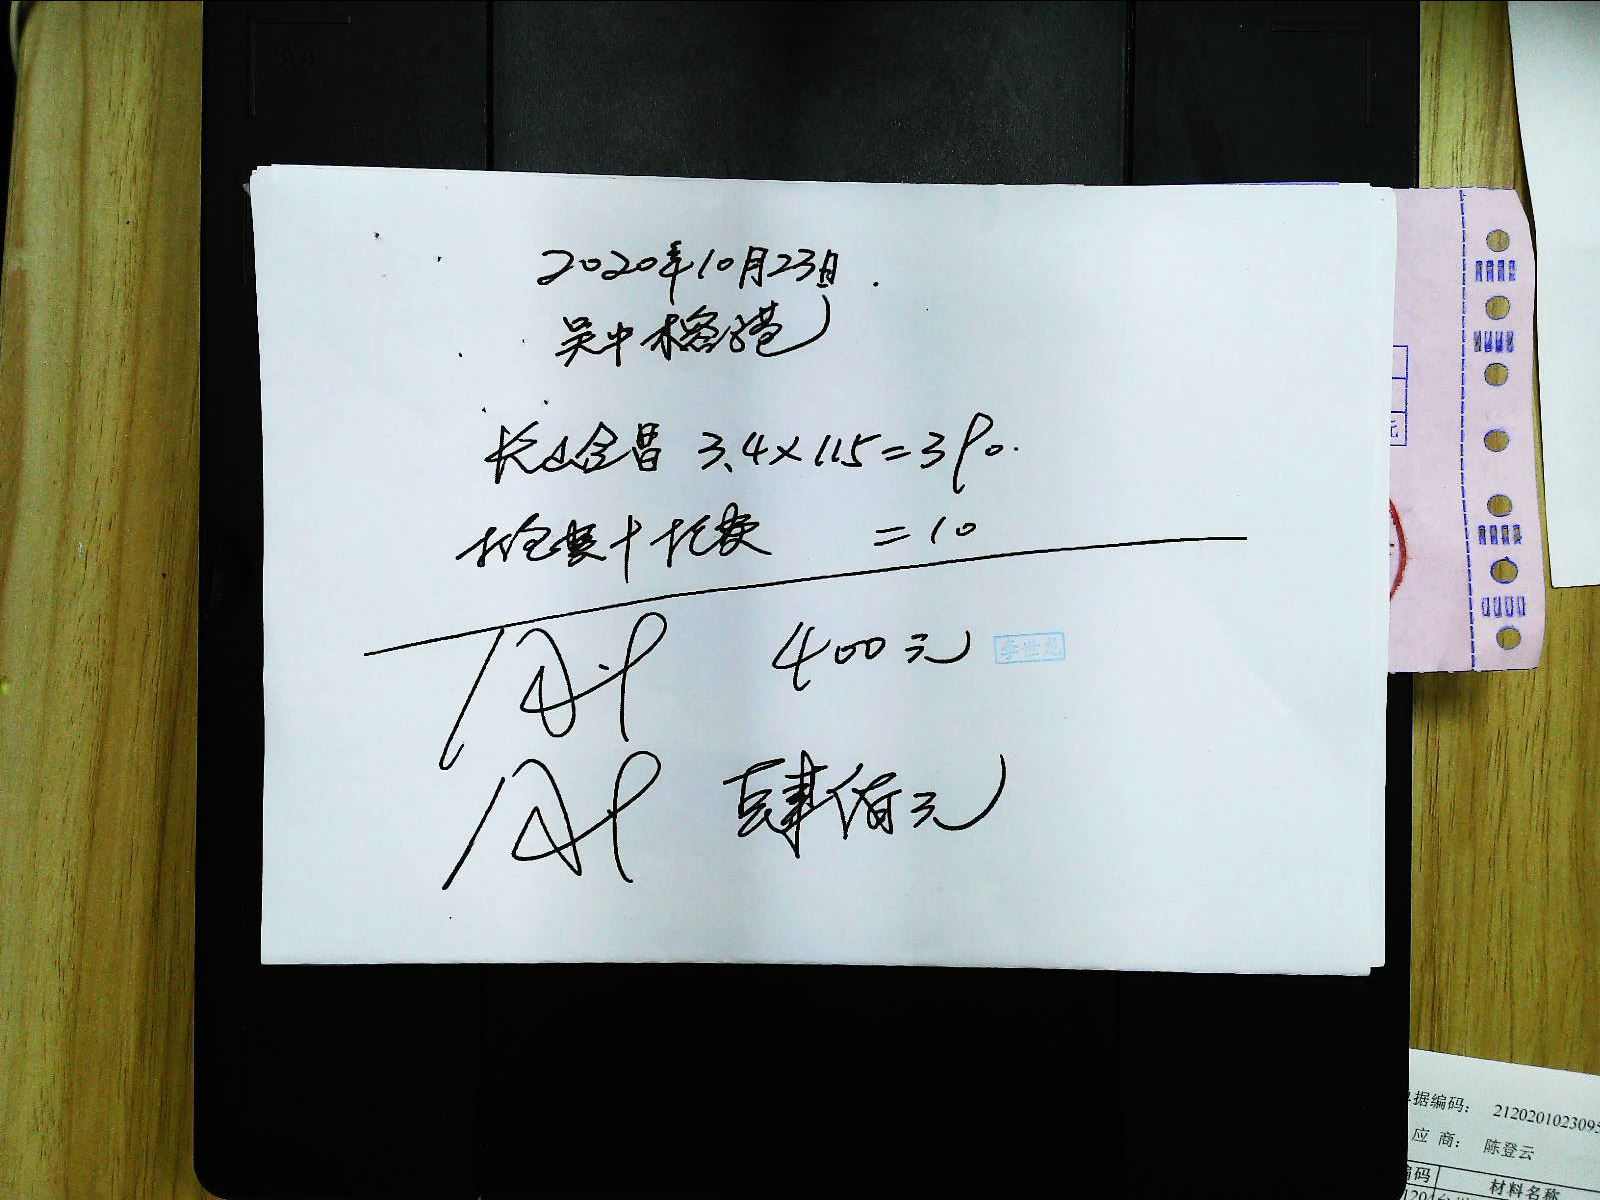 2020年10月23日.
吴中榕港
长山合昌 3.4×115=390.
打包费+托费 =10
400元
李世龙
肆佰元
单据编码: 2120201023095
应 商: 陈登云
编码
材料名称